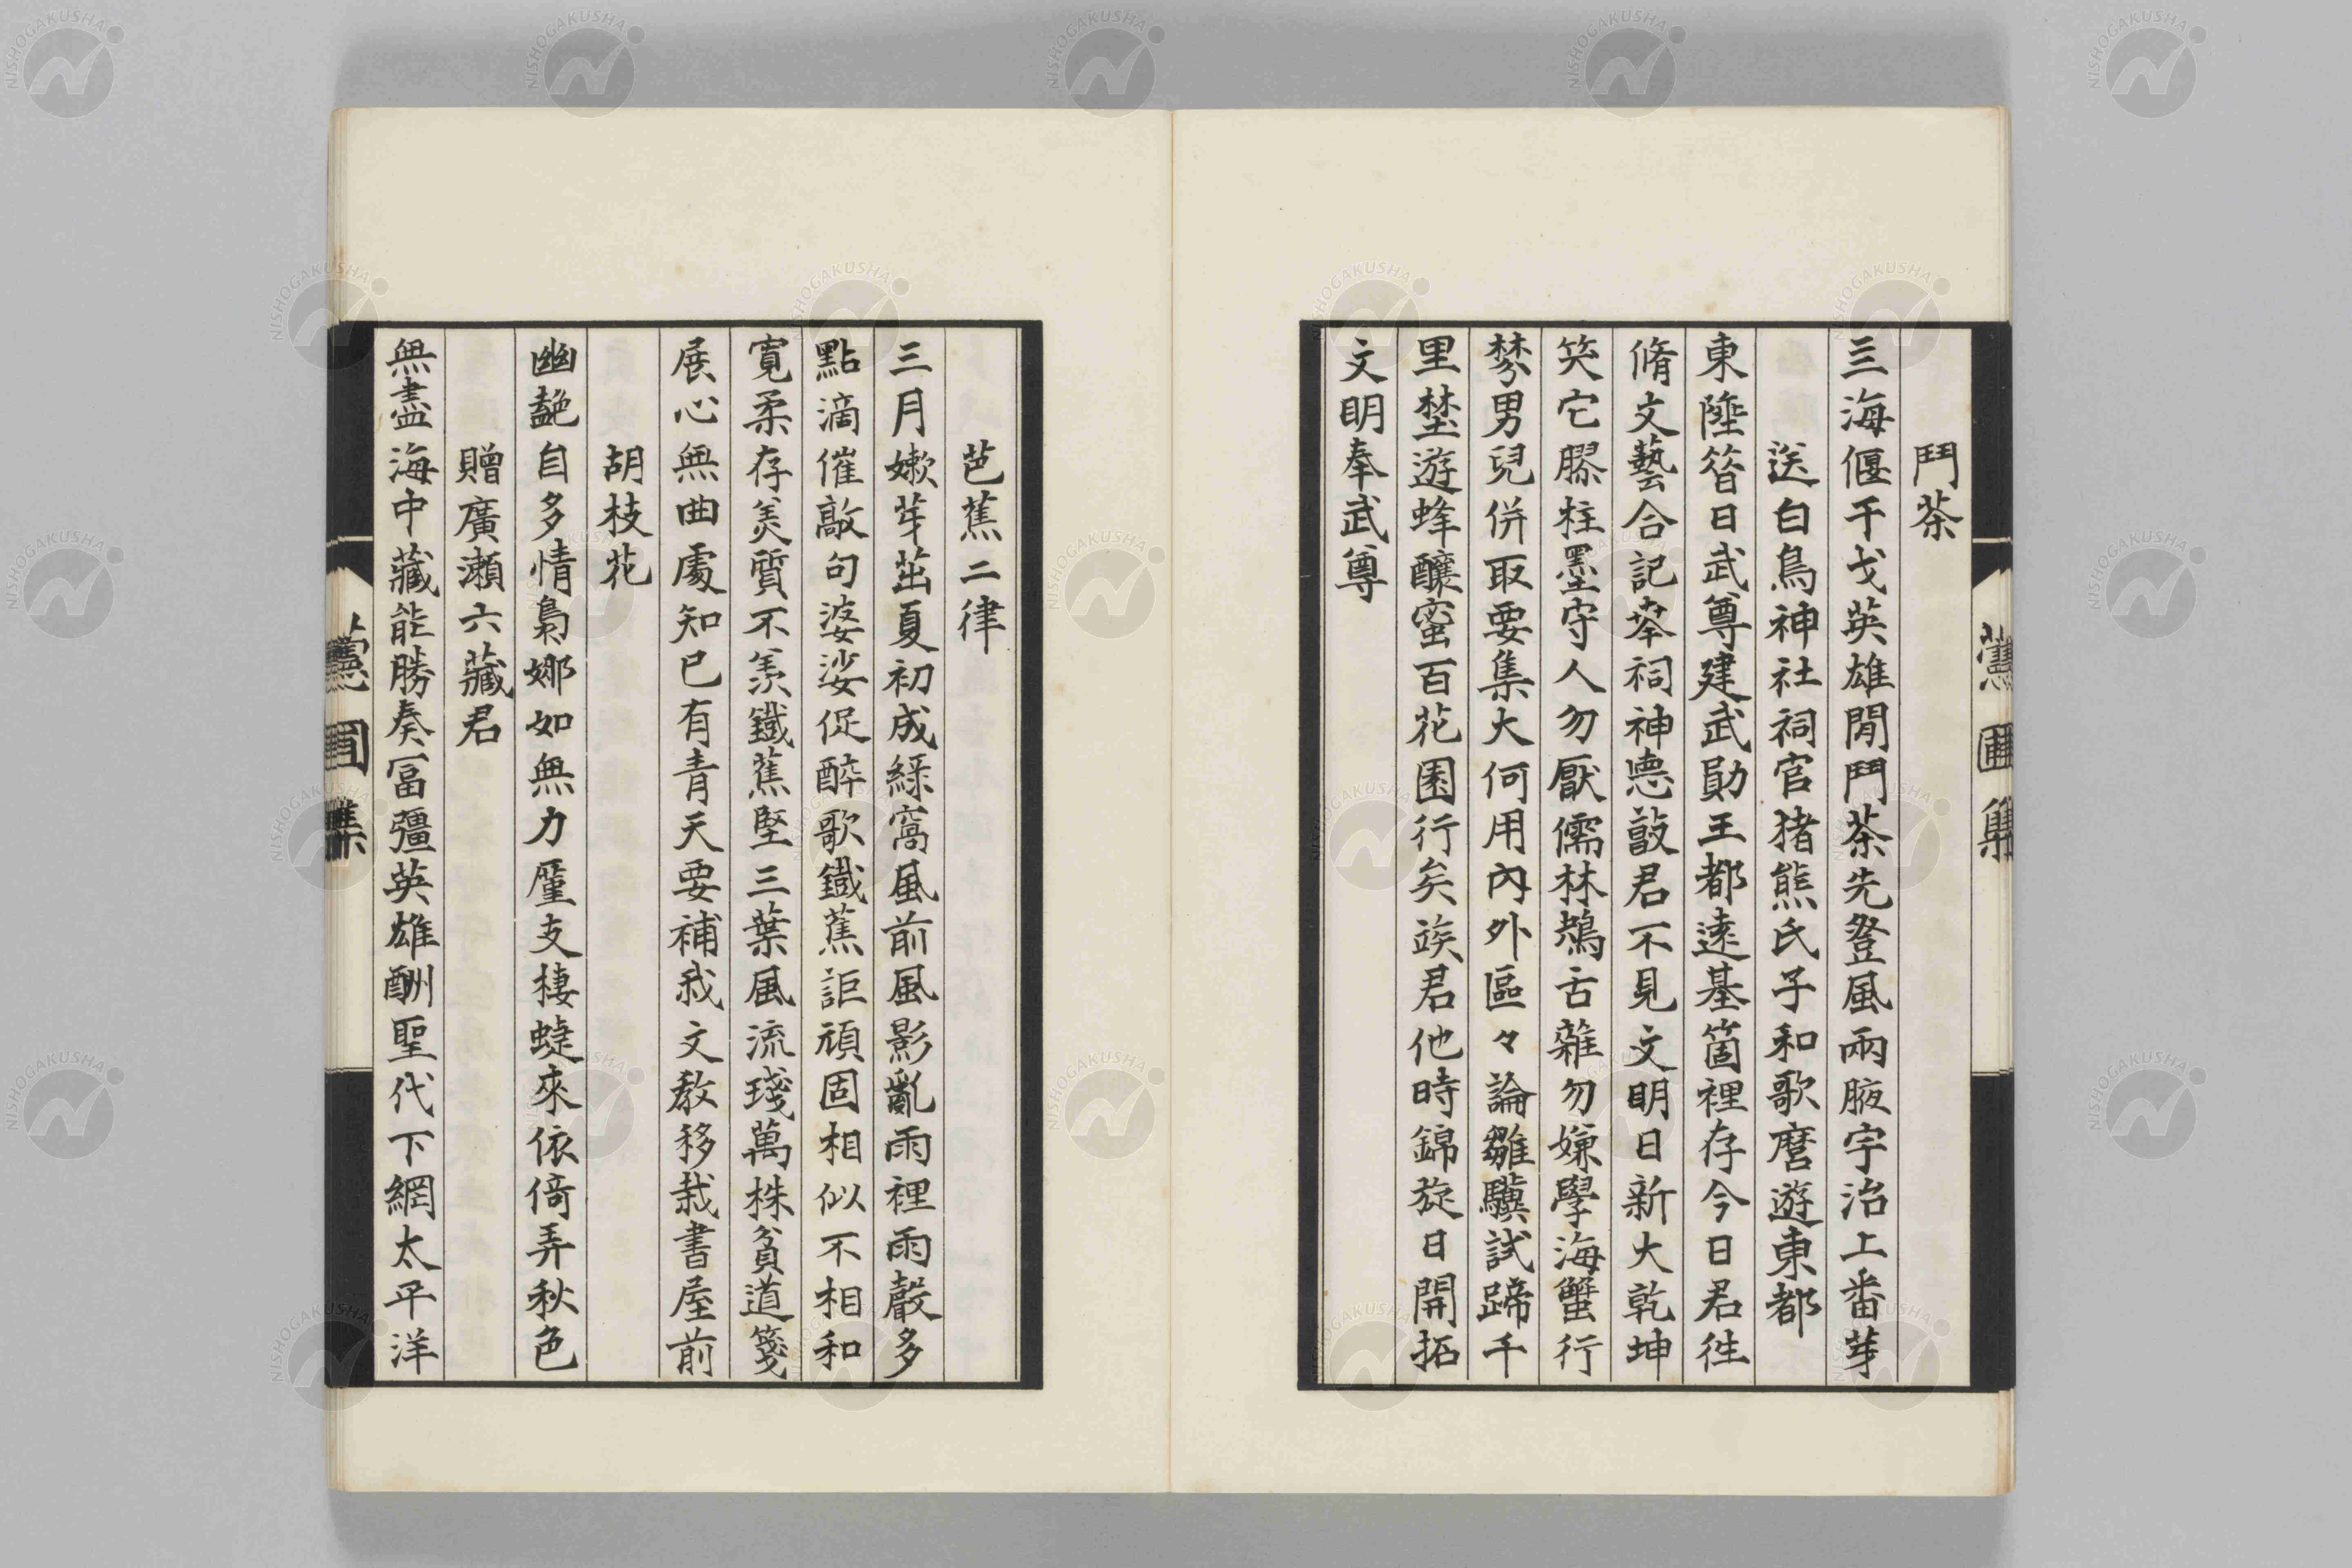 鬥茶
三海偃干戈英雄閒鬥茶先登風兩腋宇治上番芽
送白鳥神社祠官猪熊氏子和歌麿遊東都
東陲昝日武尊建武勛王都遠基箇裡存今日君徃
脩文藝合記峯祠神悳敼君不見文明日新大乾坤
笑它膠柱墨守人勿厭儒林鴂舌雜勿嫌學海蟹行
棼男兒併取要集大何用內外區々論雛驥試蹄千
里埜遊蜂釀蜜百花園行矣竢君他時錦旋日開拓
文明奉武尊
芭蕉二律
三月嫰芽茁夏初成綠窩風前風影亂雨裡雨聲多
點滴催敲句婆娑促醉歌鐵蕉詎頑固相似不相和
寬柔存美質不羨鐵蕉堅三葉風流琖萬株貧道箋
展心無曲處知已有青天要補我文教移栽書屋前
胡枝花
幽艶自多情裊娜如無力廑支棲蜨來依倚弄秋色
贈廣瀬六藏君
無盡海中藏能勝奏冨彊英雄酬聖代下網太平洋
圃集
NISHOGAKUSHA